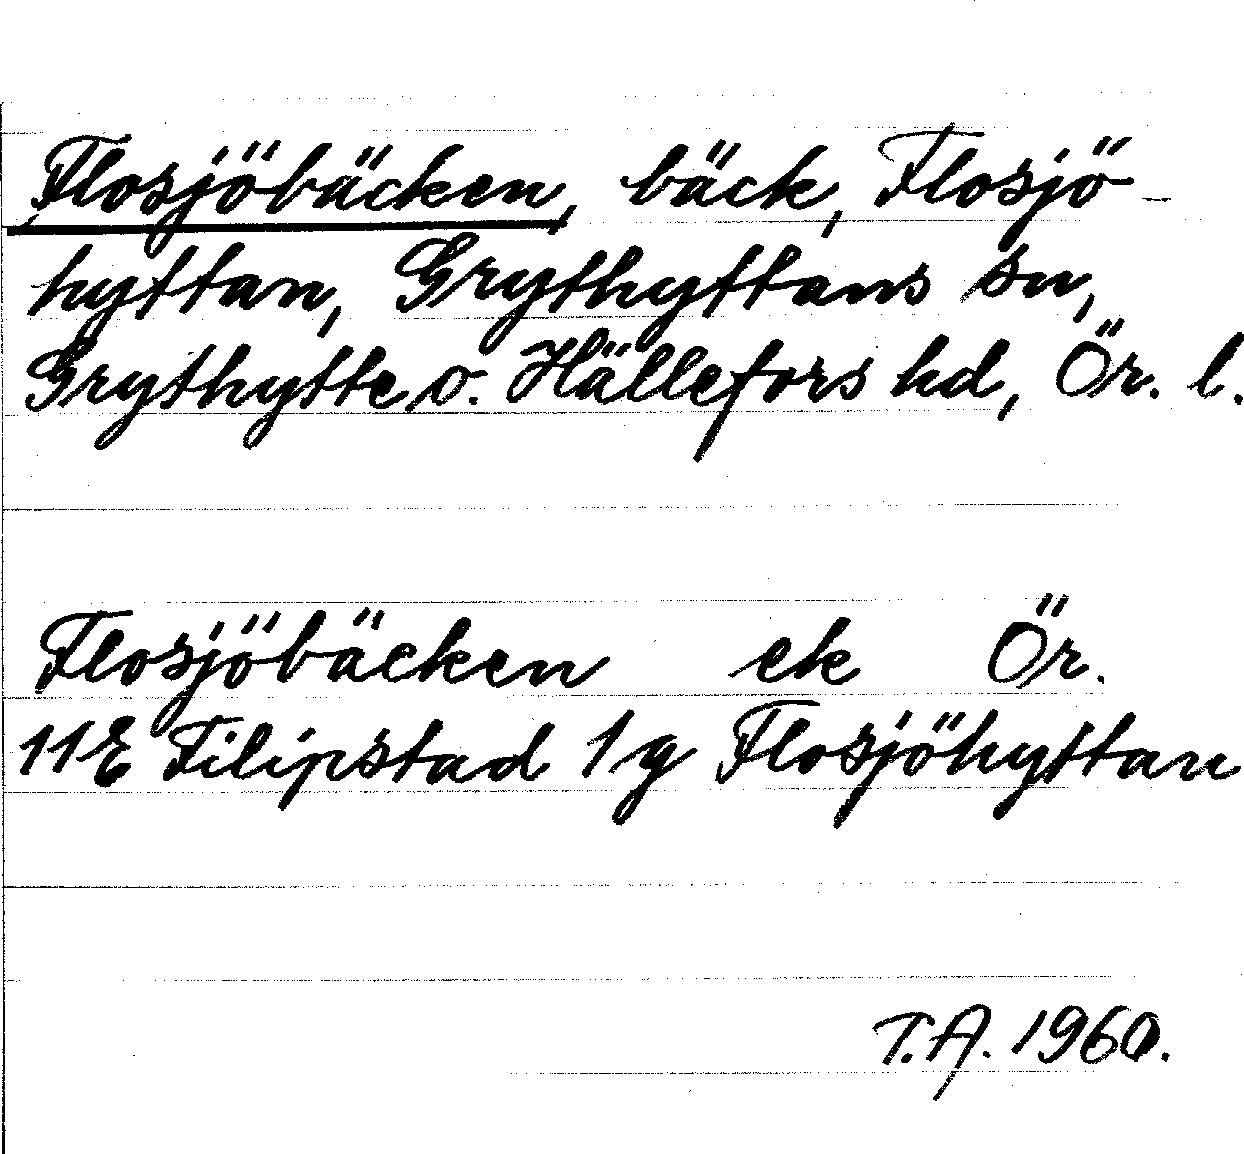 Flosjöbäcken, bäck, Flosjö-
hyttan, Grythyttans sn,
Grythytte o. Hällefors hd, Ör. l.
Flosjöbäcken ek Ör.
11E Filipstad 1g Flosjöhyttan
T.A. 1960.